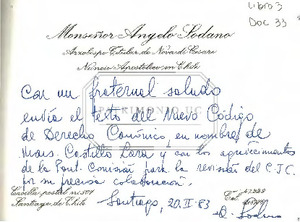 libro 3
Doc 33
Monseñor Angelo Sodano
Arzobispo Titular de Nova di Cesare
Nuncio Apostólico en Chile
Con un fraternal saludo
envía el texto del Nuevo Código
de Derecho Canónico, en nombre de
Mons. Castillo Lara y con los agradecimientos
de la Pont. Comisión para la revisión del C.J.C.
por su preciosa colaboración.
Casilla postal
Santiago de Chile
Santiago, 20.II.83
A. Sodano